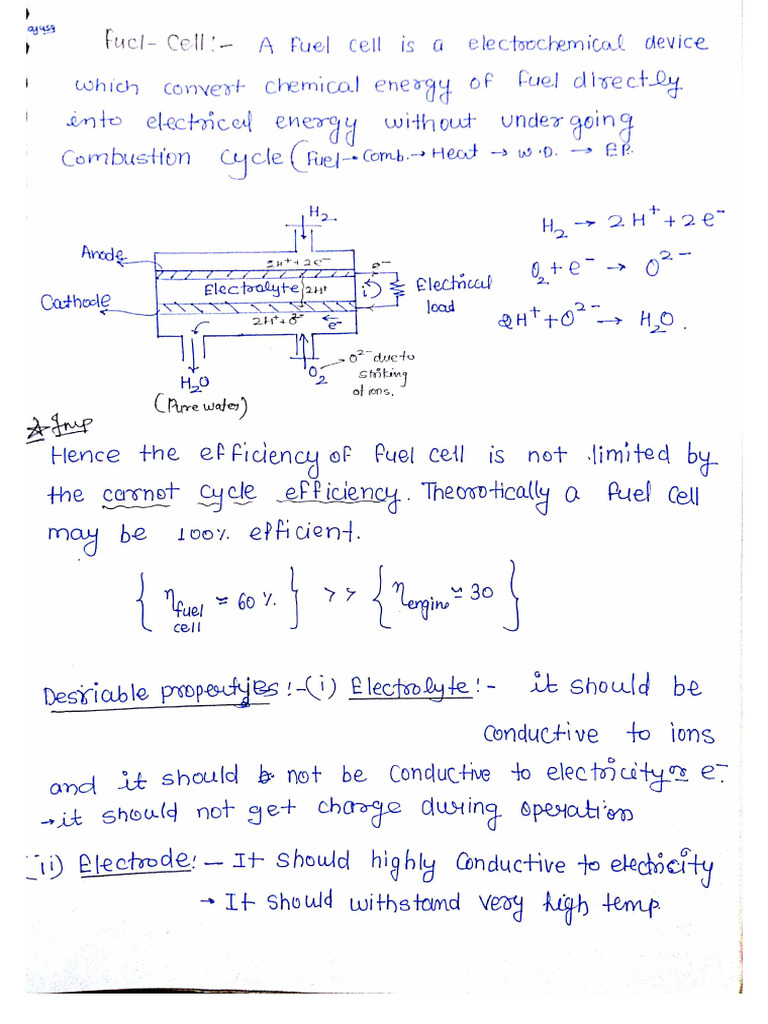 Fuel-Cell:- A fuel cell is a electrochemical device
which convert chemical energy of fuel directly
into electrical energy without undergoing
Combustion cycle (Fuel → Comb. → Heat → W.D. → EP.
H₂
H₂ → 2H⁺ + 2e⁻
Anode
2H⁺ + 2e⁻
e⁻
O₂ + e⁻ → O²⁻
Electrolyte
2H⁺
i
Electrical
load
Cathode
2H⁺ + O²⁻
e⁻
2H⁺ + O²⁻ → H₂O.
H₂O
O₂
O²⁻ due to
striking
of ions.
(Pure water)
Imp
Hence the efficiency of fuel cell is not limited by
the carnot cycle efficiency. Theorotically a fuel cell
may be 100% efficient.
{ η fuel cell = 60 % } >> { η engine ≃ 30 }
Desriable propertyies:-(i) Electrolyte:- it should be
conductive to ions
and it should not be conductive to electricity or e⁻
→ it should not get charge during operation
(ii) Electrode:- It should highly conductive to electricity
→ It should withstand very high temp.